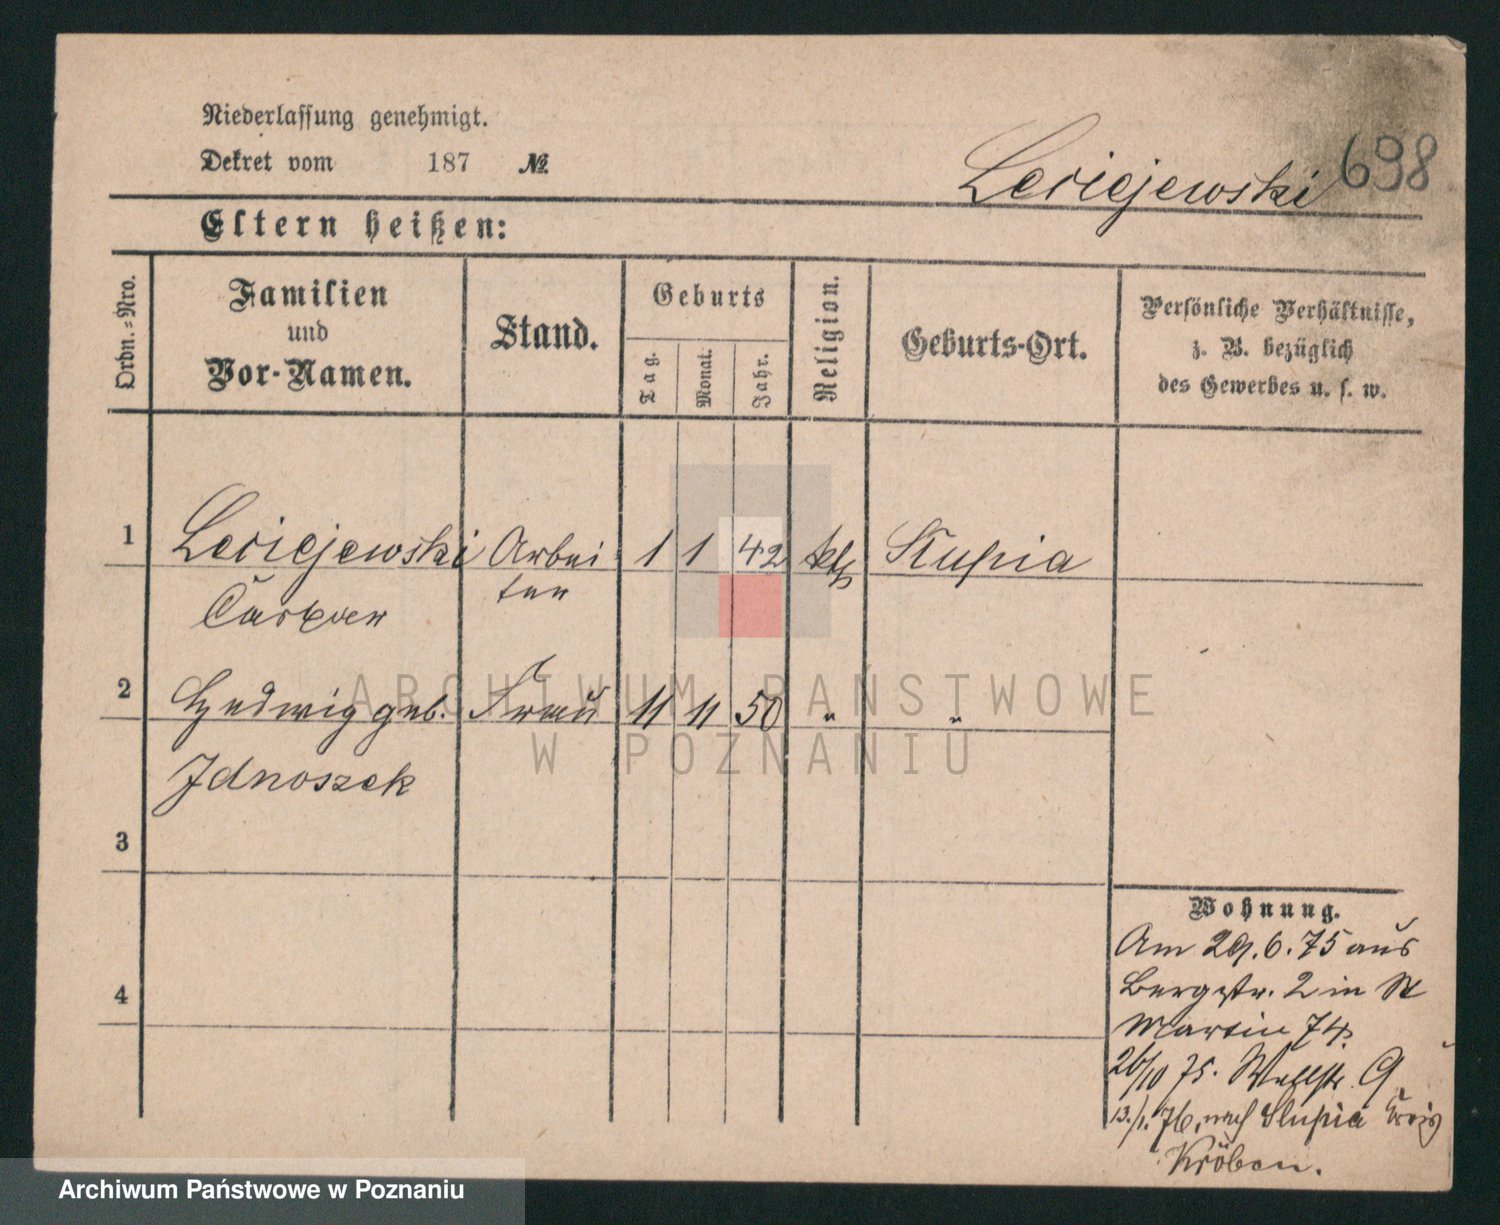 Niederlassung genehmigt.
Dekret vom 187 №
Leciejewski 698
Eltern heißen:
Ordn.=Nro.
Familien
und
Vor-Namen.
Stand.
Geburts
Tag.
Monat.
Jahr.
Religion.
Geburts-Ort.
Persönliche Verhältnisse,
z. B. bezüglich
des Gewerbes u. s. w.
1 Leciejewski Arbei 1 1 42 kth Slupia
Caspar ter
2 Hedwig geb. Frau 11 11 50 " "
Jdnoszek
3
4
Wohnung.
Am 29.6.75 aus
Bergstr. 2 in St
Martin 74.
26/10 75. Wallstr. 9
13./1. 76, nach Slupia Kreis
Kröben.
ARCHIWUM PAŃSTWOWE
W POZNANIU
Archiwum Państwowe w Poznaniu